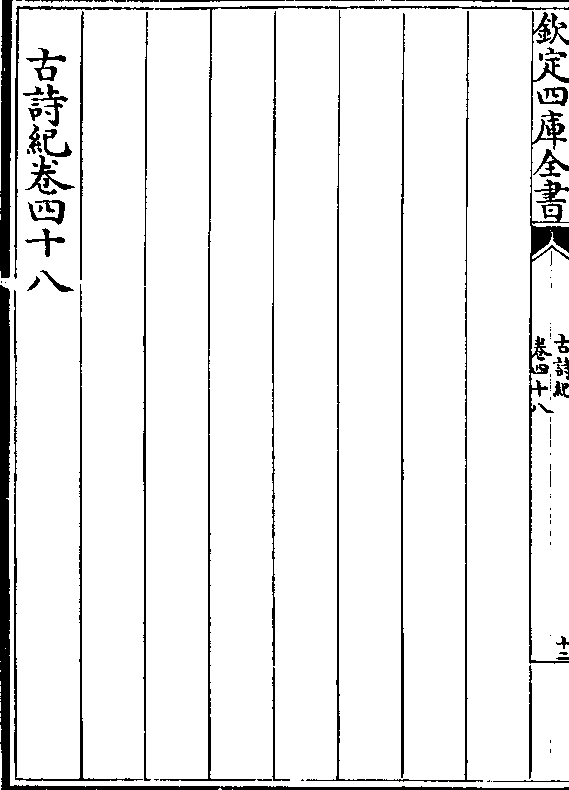 欽定四庫全書
古詩紀
卷四十八
十二
古詩紀卷四十八